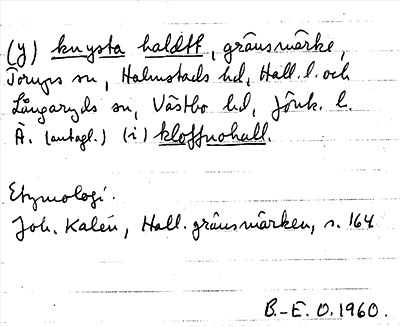 (y) knysta haldtt, gränsmärke,
Torups sn, Halmstads hd, Hall. l. och
Långaryds sn, Västbo hd, Jönk. l.
Ä. (antagl.) (i)
Etymologi.
Joh. Kalén, Hall. gränsmärken, s. 164
B.-E. O. 1960.